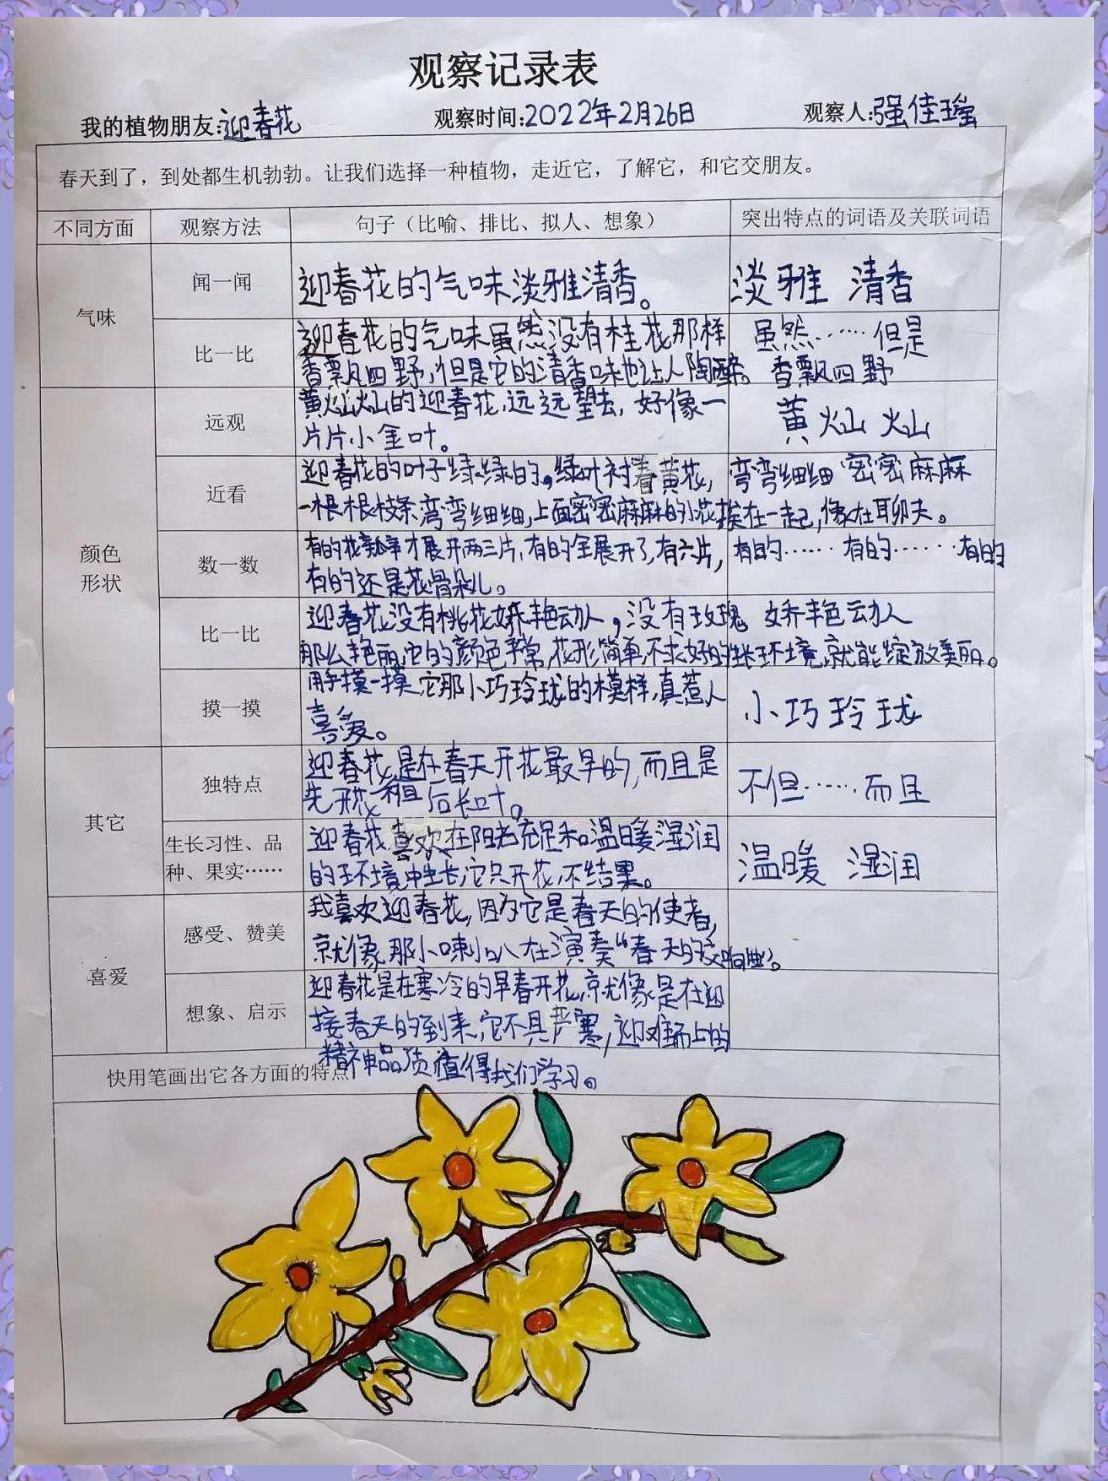 观察记录表
我的植物朋友:迎春花 观察时间:2022年2月26日 观察人:强佳瑶
春天到了，到处都生机勃勃。让我们选择一种植物，走近它，了解它，和它交朋友。
不同方面 观察方法 句子（比喻、排比、拟人、想象） 突出特点的词语及关联词语
气味
闻一闻 迎春花的气味淡雅清香。 淡雅 清香
比一比 迎春花的气味虽然没有桂花那样 虽然……但是
香飘四野,但是它的清香味也让人陶醉。 香飘四野
颜色
形状
远观 黄灿灿的迎春花,远远望去,好像一 黄灿灿
片片小金叶。
近看 迎春花的叶子绿绿的,绿叶衬着黄花, 弯弯细细 密密麻麻
一根根枝条弯弯细细,上面密密麻麻的小花挨在一起,像在聊天。
数一数 有的花瓣才展开两三片,有的全展开了,有六片, 有的……有的……有的
有的还是花骨朵儿。
比一比 迎春花没有桃花娇艳动人,没有玫瑰 娇艳动人
那么艳丽,它的颜色平常,花形简单,不求好的环境,就能绽放美丽。
摸一摸 用手摸一摸它那小巧玲珑的模样,真惹人 小巧玲珑
喜爱。
其它
独特点 迎春花是在春天开花最早的,而且是 不但……而且
先开花 后长叶。
生长习性、品
种、果实…… 迎春花喜欢在阳光充足和温暖湿润 温暖 湿润
的环境中生长,它只开花,不结果。
喜爱
感受、赞美 我喜欢迎春花,因为它是春天的使者,
就像那小喇叭在演奏“春天的交响曲”。
想象、启示 迎春花是在寒冷的早春开花,就像是在迎
接春天的到来,它不畏严寒,迎难而上的
精神品质值得我们学习。
快用笔画出它各方面的特点